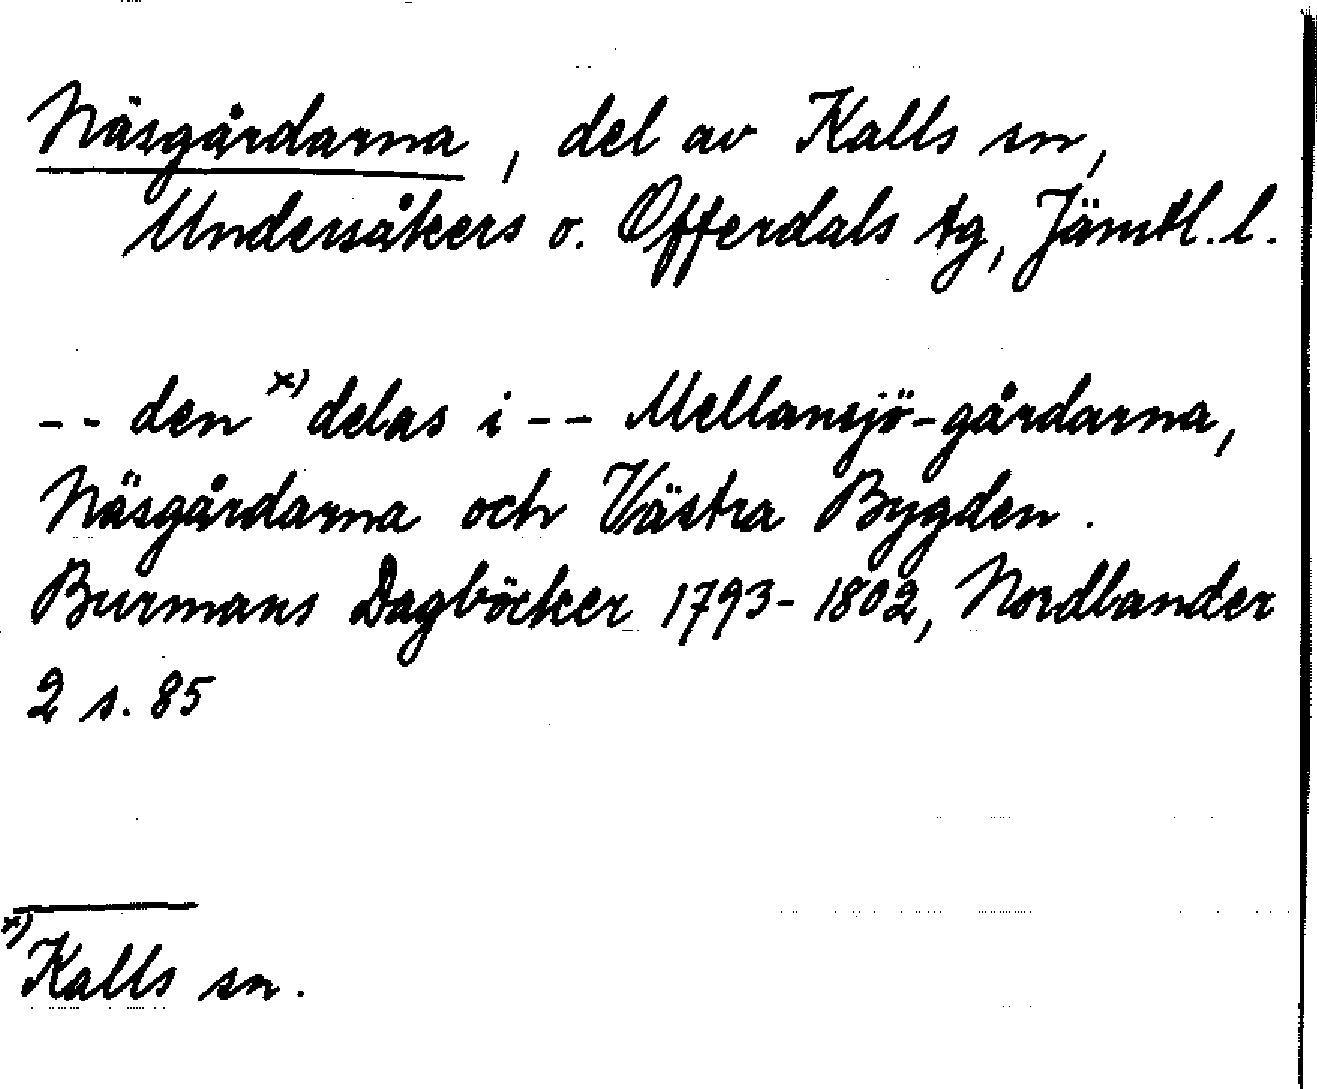 Näsgårdarna, del av Kalls sn,
Undersåkers o. Offerdals tg, Jämtl. l.
-- den x) delas i -- Mellansjö-gårdarna,
Näsgårdarna och Västra Bygden.
Burmans Dagböcker 1793-1802, Nordlander
2 s. 85
x) Kalls sn.